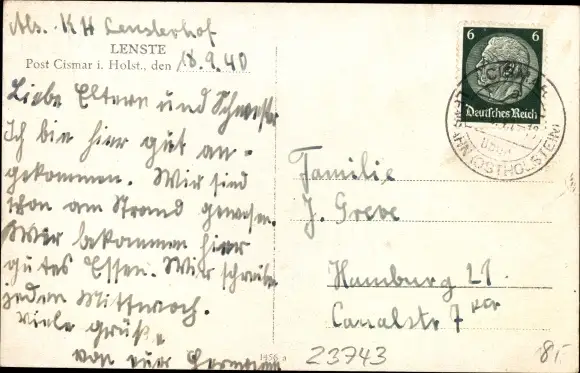 Abs. KH Lensterhof
LENSTE
Post Cismar i. Holst., den 18.9.40
Liebe Eltern und Schwester
Ich bin hier gut an-
gekommen. Wir sind
schon am Strand gewesen.
Wir bekommen hier
gutes Essen. Wir schreiben
jeden Mittwoch.
viele Grüße
von eur Hermann
6 6
Deutsches Reich
CISMAR
über
(OSTHOLSTEIN)
Familie
J. Greve
Hamburg 21.
Canalstr 7
1456
23743
8,-